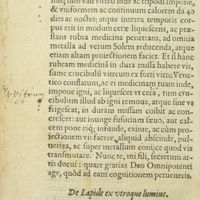 dies ac noctes; atque interea temporis cor-
pus erit in modum ceræ liquescens, ac præ-
stans robea medicina penetrans, ad omnia
metalla ad verum Solem reducenda, atque
etiam altâ proiectionem faciet. Et si hanc
rubram medicinã in dura massa habere vis,
sume crucibulum vitreum ex forti vitro Vene-
tico conflatum, & ne medicinam tuam inde,
impone, ac igni admoue, tunc paulatim
liquescit illud ab igni remoue, atque sine ve
frigescit, in duram massam coibit ac con-
crescet: aut inunge fusorium suum, aut cal-
cem pone eiq; infunde, exinc, ac cùm proie-
ctionem vis facere, aliquid abscinde, pul-
ueriza, ac super metallum conijce quod vis
transmutare. Nunc te, mi fili, secretum ar-
tis docui: quare gratias Deo Omnipotenti
age, quòd ad eam cognitionem perueneris.
De Lapide ex vtroque lumine.